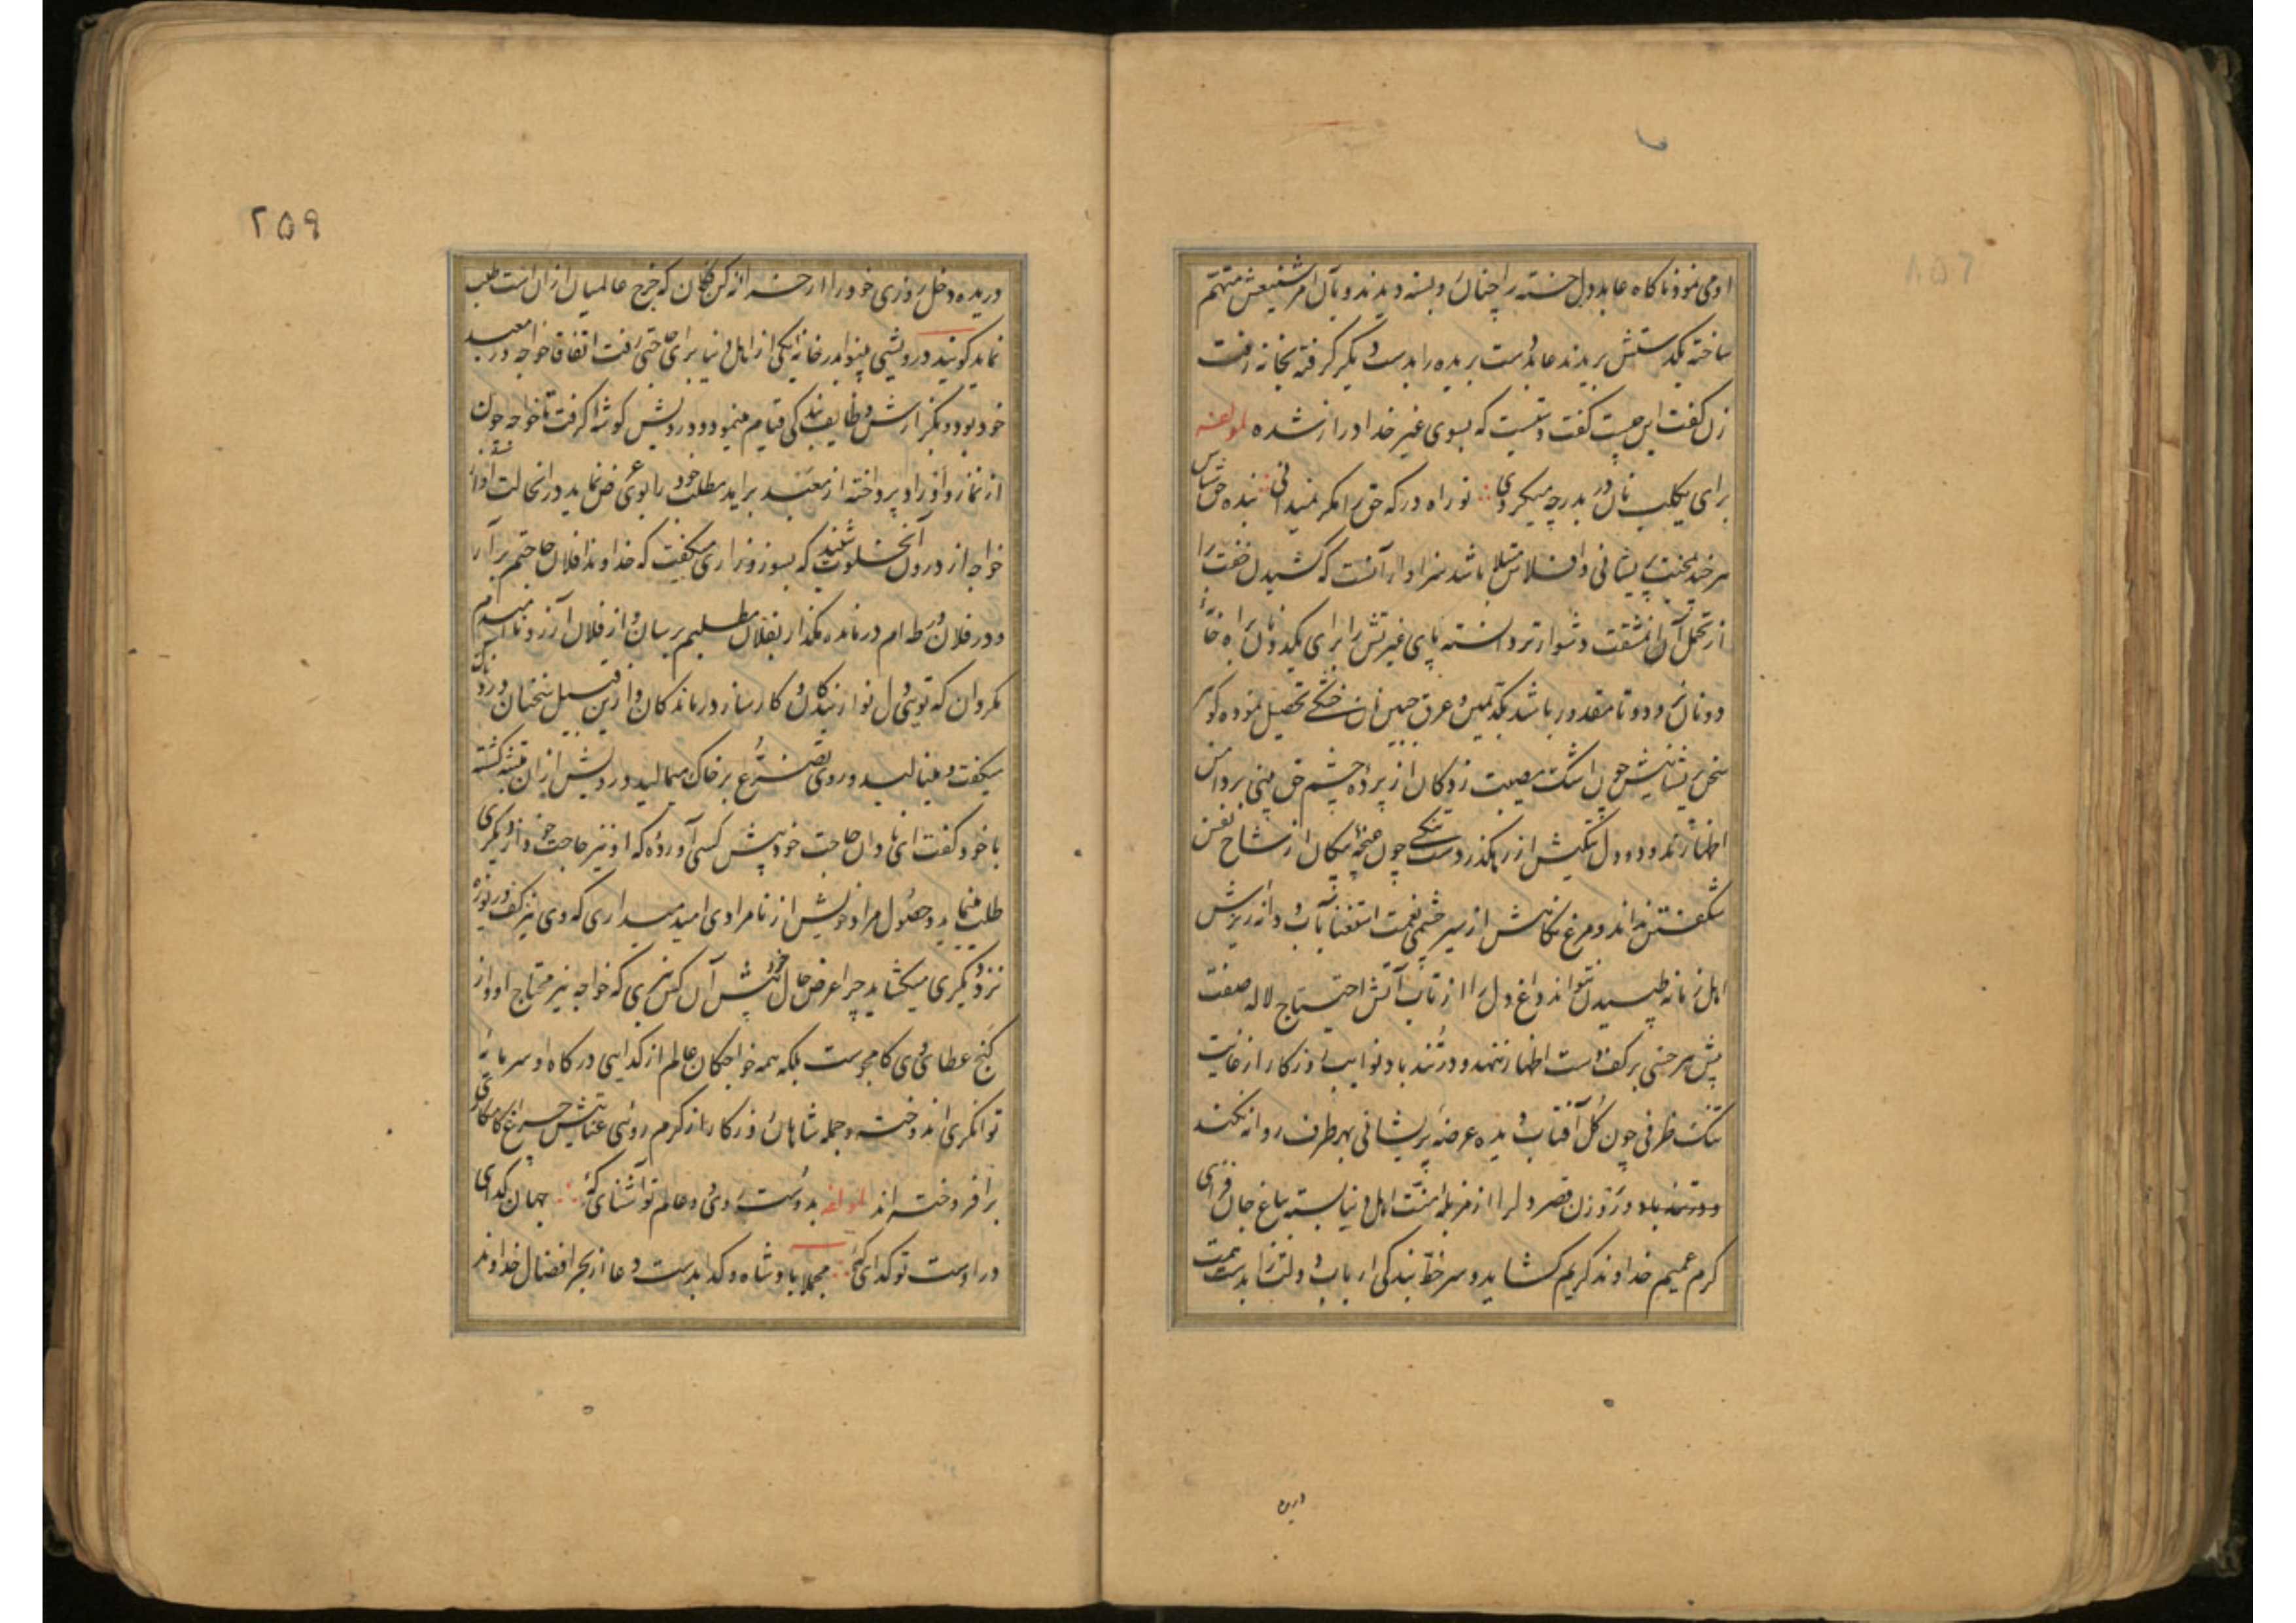 او می نمود ناگاه عابد دل خسته را چنان دست و بسته دیدند و بآن امر شنیعش متهم
ساخته یکدستش بریدند عابد دست بریده را بدست دیگر گرفته بخانه رفت
زن گفت این چیست گفت دستیست که بسوی غیر خدا دراز شده لمولفه
برای یکلب نان در بدر چه میگردی تو راه درگه حق را مگر نمیدانی بنده حق شناس
هر چند بمحنت پریشانی و افلاس مبتلا باشد سزاوار آنست که کشیدن خفت را
از تحمل آن مشقت دشوارتر دانسته پای غیرتش را برای یکدو نان راه خانه
دونان نرود و تا مقدور باشد بکد یمین و عرق جبین نان خشکی تحصیل نموده گوهر
سخن پریشانیش چون اشک مصیبت زدگان از پرده چشم حق بینی بر دامن
اظهار نچکد و دل تنگیش از رهگذر دست تنگی چون غنچه پیکان از شاخ نفس
شگفتن نداند و مرغ نگاهش از سیر چشمی نعمت استغنا بآب و دانه ریزش
اهل زمانه طپیدن نتواند داغ دل را از تاب آتش احتیاج لاله صفت
پیش هر خسی بر کف دست اظهار ننهد و در تند باد نوایب روزگار از غایت
تنگ ظرفی چون گل آفتاب دیده عرضه پریشانی بهر طرف روانه نکند
و در تند باد و روزن قصر دل را از مزبله منت اهل دنیا بسته بباغ جان فزای
کرم عمیم خداوند کریم گشاید و سر خط بندگی ارباب دولت را بدست همت
دریده
۲۵۹
دریده دخل روزی خود را از خزانه کن فکان که خرج عالمیان از آن است طلب
نماید گویند درویشی بینوا بدر خانه یکی از اهل دنیا برای حاجتی رفت اتفاقا خواجه در معبد
خود بود و بگزارش وظایف بندگی قیام مینمود و درویش گوشه گرفت تا خواجه چون
از نماز و اوراد پرداخته از معبد برآید مطلب خود را بوی عرض نماید در آنحالت آواز
خواجه از درون آن خلوت شنید که بسوز و زاری میگفت که خداوندا فلان حاجتم برآر
و در فلان ورطه ام درمانده مگذار بفلان مطلبم برسان و از فلان آرزو ناامیدم
مگردان که تویی دل نواز بندگان و کارساز درماندگان و ازین قبیل سخنان بر زبان
میگفت و مینالید و روی تضرع بر خاک میمالید درویش از آن متنبه گشته
با خود گفت ای نادان حاجت خود پیش کسی آورده که او نیز حاجت خود از دیگری
طلب مینماید و حصول مراد خویش از نامرادی امید میداری که وی نیز کف دریوزه
نزد دیگری میگشاید چرا عرض حال خود پیش آن کس نبری که خواجه نیز محتاج او و از
گنج عطای وی کامجوست بلکه همه خواجگان عالم از گدایی درگاه او سرمایه
توانگری اندوخته و جمله شاهان روزگار از کرم روشنی عنایتش چراغ کامکاری
برافروخته اند لمولفه بدوست روی و دو عالم تو آشنای که جهان گدای
در اوست تو گدای که مجملا پادشاه و گدا بدست دعا از بحر افضال خداوند